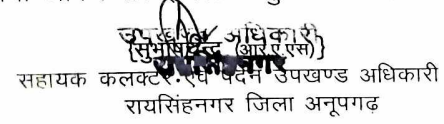 उपखण्ड अधिकारी
{सुभाषचन्द्र (आर.ए.एस)}
रायसिंहनगर
सहायक कलक्टर एवं पदेन उपखण्ड अधिकारी
रायसिंहनगर जिला अनूपगढ़